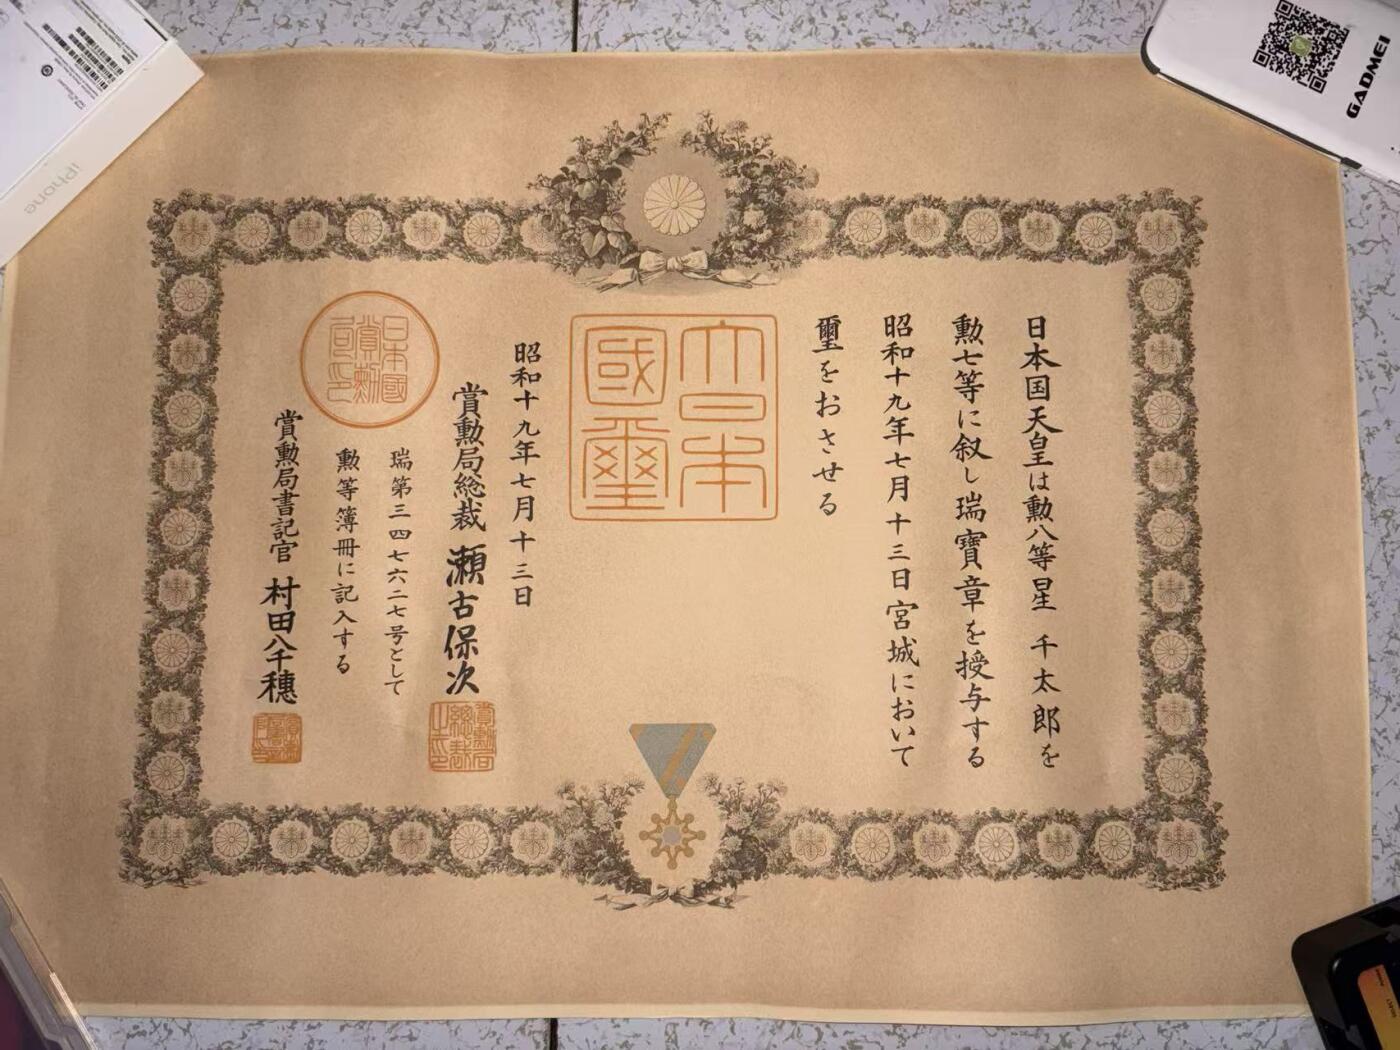 日本国天皇は勲八等星　千太郎を
勲七等に叙し瑞寶章を授与する
昭和十九年七月十三日宮城において
璽をおさせる
大日本國璽
昭和十九年七月十三日
賞勲局総裁　瀬古保次
日本國賞勲局印
瑞第三四七六二七号として
勲等簿冊に記入する
賞勲局書記官　村田八千穗
賞勲局総裁之印
iPhone
GADMEI